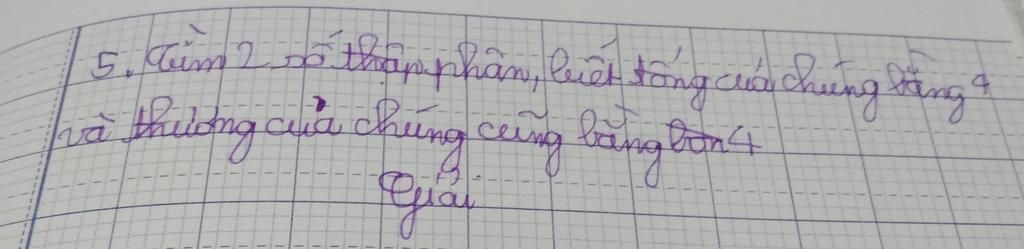 5. Tìm 2 số thập phân, biết tổng của chúng bằng 4
và thương của chúng cũng bằng 4
Giải